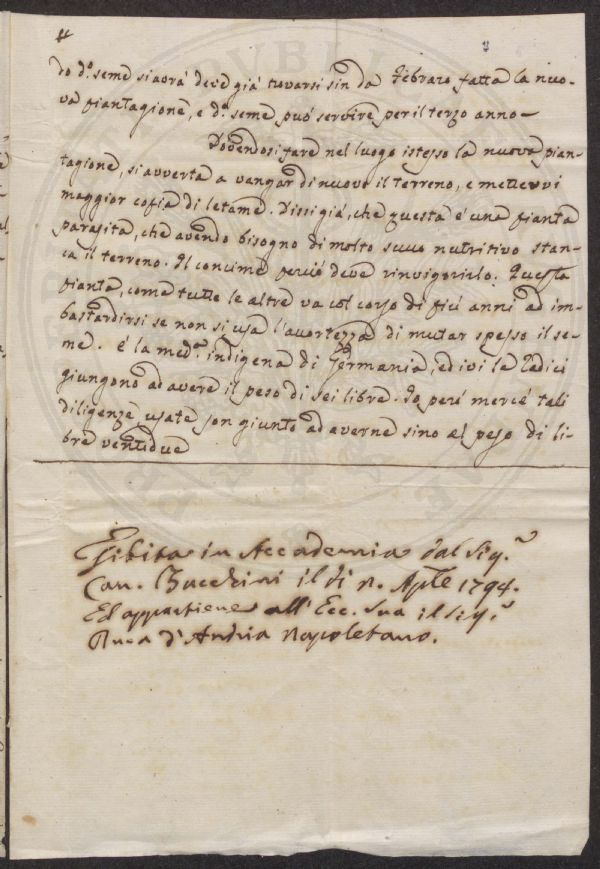 do d.º seme si avrà deve già trovarsi sin da Febraro fatta la nuo-
va piantagione, e d.º seme può servire per il terzo anno-
Dovendosi fare nel luogo istesso la nuova pian-
tagione, si avverta a vangar di nuovo il terreno, e mettervi
maggior copia di letame. Dissi già, che questa è una pianta
parasita, che avendo bisogno di molto succo nutritivo stan-
ca il terreno. Il concime perciò deve rinvigorirlo. Questa
pianta, come tutte le altre va col corso di più anni ad im-
bastardirsi se non si usa l'avortezza di mutar spesso il se-
me. è la med.ª indigena di Germania, ed ivi le Radici
giungono ad avere il peso di sei libre. Io però mercè tali
diligenze usate son giunto ad averne sino al peso di li-
bre ventidue
Esibita in Accademia dal Sig.r
Can. Zucchini il dì Aple 1794.
Ed appartiene all'Ecc. Sua il Sig.r
Duca d'Andria Napoletano.